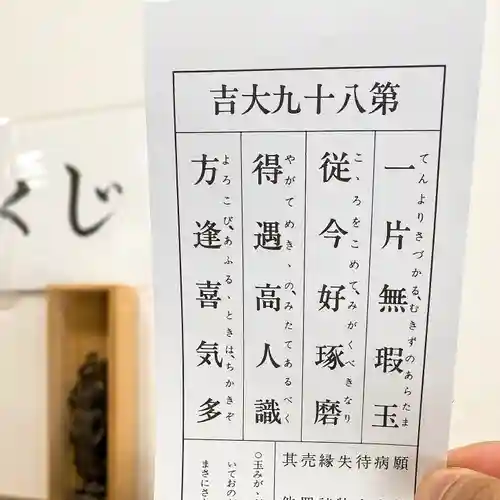 第八十九大吉
一片無瑕玉
てんよりさづかる、むきずのあらたま
従今好琢磨
こゝろをこめて、みがくべきなり
得遇高人識
やがてめきゝの、みたてあるべく
方逢喜気多
よろこび、あふるゝときは、ちかきぞ
願病待失縁売其
○玉みが
いておの
まさにさ
くじ